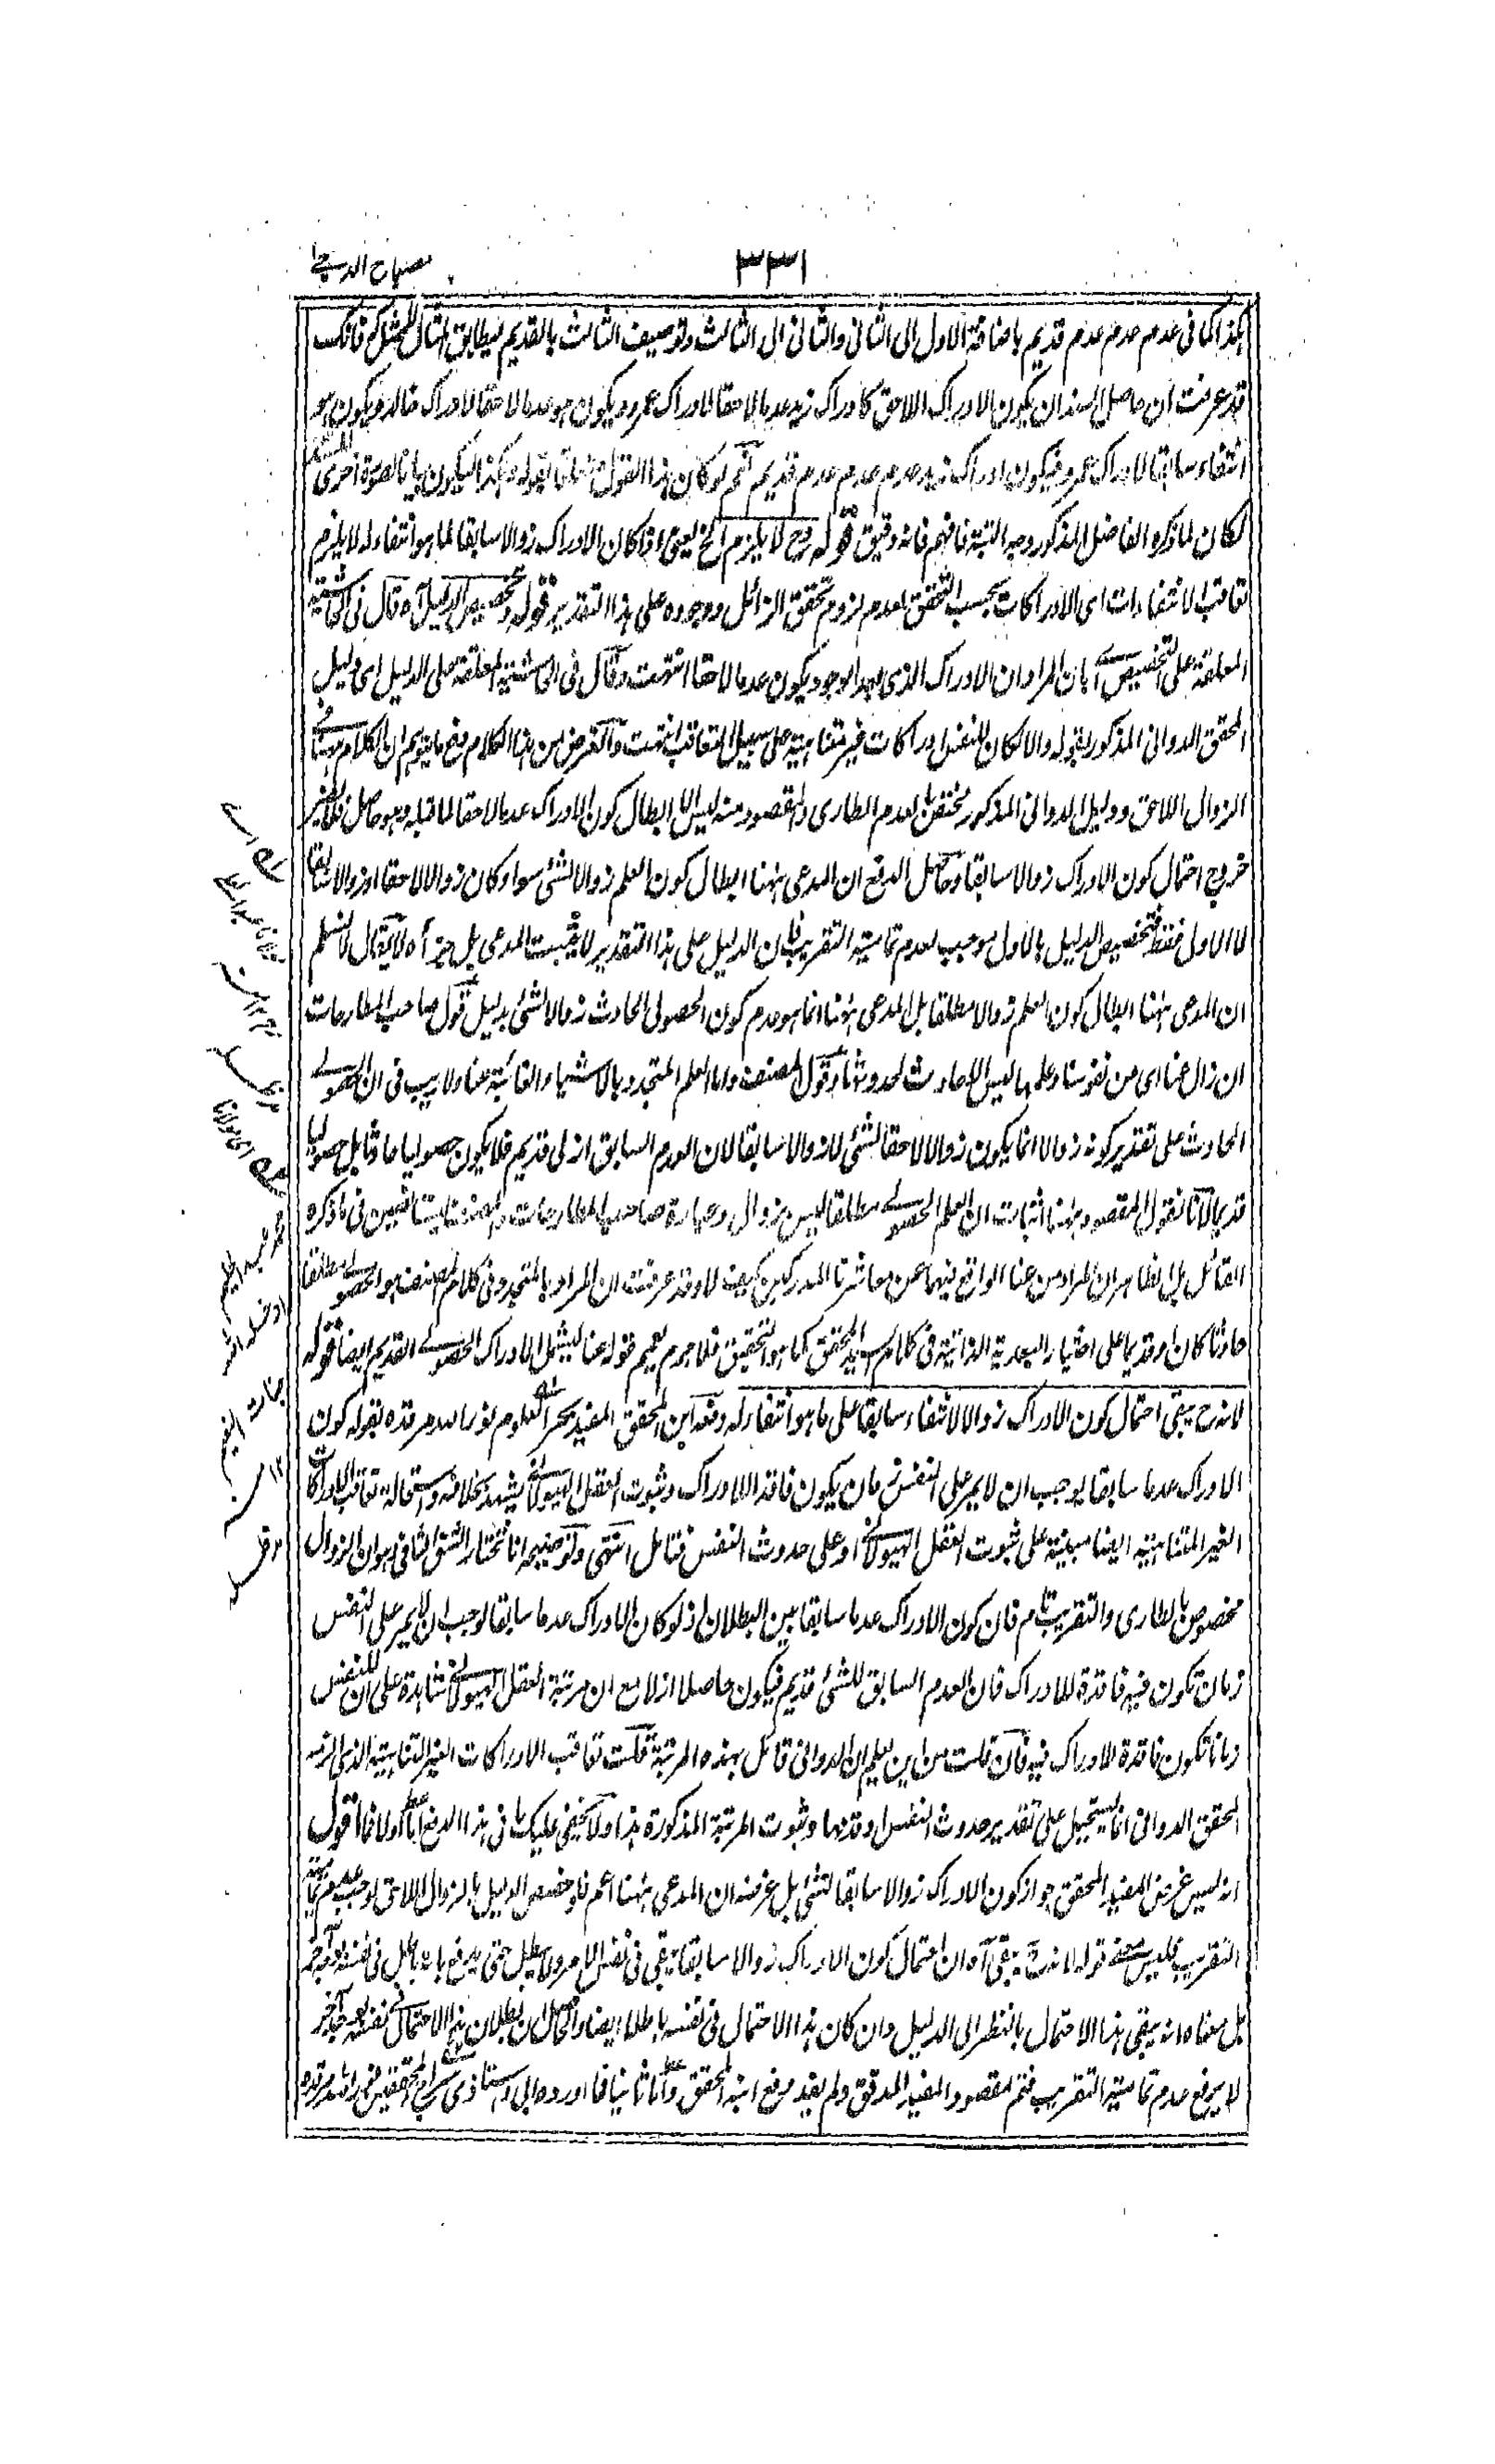 ٣٣١
مصباح الدجى
هكذا كما فى عدم عدم عدم قديم باضافة الاول الى الثانى والثانى الى الثالث وتوصيف الثالث بالقديم ليطابق المثال للممثل له فانك
قد عرفت ان حاصل السند ان يكون الادراك اللاحق كادراك زيد عدما لاحقا لادراك عمرو ويكون هو عدما لاحقا لادراك خالد ويكون هو
انتفاء سابقا لادراك عمرو فيكون ادراك زيد عدم عدم عدم قديم نعم لو كان هذا القول متعلقا بقوله وهكذا ليكون بيانا لصورة اخرى
لكان لما ذكره الفاضل المذكور وجه البتة فافهم فانه دقيق قوله وح لا يلزم الخ يعنى اذا كان الادراك زوالا سابقا لما هو انتفاء له لا يلزم
تعاقب الانتفاءات اى الادراكات بحسب التحقق لعدم لزوم تحقق الزائل ووجوده على هذا التقدير قوله وتخصيص الدليل آه قال فى الحاشية
المعلقة على التخصيص بان المراد ان الادراك الذى بعد الوجود يكون عدما لاحقا انتهت وقال فى الحاشية المعلقة على الدليل اى دليل
المحقق الدوانى المذكور بقوله والا لكان للنفس ادراكات غير متناهية على سبيل التعاقب انتهت والغرض من هذا الكلام دفع ما يتوهم ان الكلام ههنا فى
الزوال اللاحق ودليل الدوانى المذكور مختص بالعدم الطارى والمقصود منه ليس الا ابطال كون الادراك عدما لاحقا لما قبله وهو حاصل فلا يضر
خروج احتمال كون الادراك زوالا سابقا وحاصل الدفع ان المدعى ههنا ابطال كون العلم زوالا لشئ سواء كان زوالا لاحقا او زوالا سابقا
لا الاول فقط فتخصيص الدليل بالاول موجب لعدم تمامية التقريب فان الدليل على هذا التقدير لا يثبت المدعى بل جزأه لا يقال لا نسلم
ان المدعى ههنا ابطال كون العلم زوالا مطلقا بل المدعى ههنا انما هو عدم كون الحصولى الحادث زوالا لشئ بدليل قول صاحب المطارحات
ان زال عنا اى من نفوسنا وعلمها ليس الا حادث لحدوثها وقول المصنف واما العلم المتجدد بالاشياء الغائبة عنا ولا ريب فى ان الحصولى
الحادث على تقدير كونه زوالا انما يكون زوالا لاحقا لشئ لا زوالا سابقا لان العدم السابق ازلى قديم فلا يكون حصوليا حادثا بل حصوليا
قديما لانا نقول المقصود ههنا اثبات ان العلم الحصولى مطلقا ليس بزوال وعبارة صاحب المطارحات والمصنف ليستا نصين فى ما ذكره
القائل بل الظاهر ان المراد من عنا الواقع فيهما عن معاشرنا المدركين كيف لا وقد عرفت ان المراد بالمتجدد فى كلام المصنف هو الحصولى مطلقا
حادثا كان او قديما على اختيار البعدية الذاتية فى كلام السيد المحقق كما هو التحقيق فلا جرم تعميم قوله عنا ليشمل الادراك الحصولى القديم ايضا قوله
لانه ح يبقى احتمال كون الادراك زوالا لانتفاء سابقا على ما هو انتفاء له دفعه ابن المحقق المفيد بحر العلوم نور الله مرقده بقوله كون
الادراك عدما سابقا يوجب ان لا يمر على النفس زمان يكون فاقدا للادراك وثبوت العقل الهيولانى يشهد بخلافه واستحالة تعاقب الادراكات
الغير المتناهية ايضا مبنية على ثبوت العقل الهيولانى او على حدوث النفس فتامل انتهى وتوضيحه انا نختار الشق الثانى وهو ان الزوال
مخصوص بالطارى والتقريب تام فان كون الادراك عدما سابقا بين البطلان اذ لو كان الادراك عدما سابقا لوجب ان لا يمر على النفس
زمان تكون فيه فاقدة للادراك فان العدم السابق للشئ قديم فيكون حاصلا ازلا مع ان مرتبة العقل الهيولانى شاهدة على ان للنفس
زمانا تكون فاقدة للادراك فيه فان قلت من اين يعلم ان الدوانى قائل بهذه المرتبة قلت تعاقب الادراكات الغير المتناهية الذى الزمه
المحقق الدوانى انما يستحيل على تقدير حدوث النفس او قدمها وثبوت المرتبة المذكورة هذا ولا يخفى عليك ما فى هذا الدفع اما اولا فما اقول
انه ليس غرض المفيد المحقق جواز كون الادراك زوالا سابقا لشئ بل غرضه ان المدعى ههنا اعم فلو خصص الدليل بالزوال اللاحق لوجب عدم تمامية
التقريب فليس معنى قوله لانه ح يبقى آه ان احتمال كون الادراك زوالا سابقا يبقى فى نفس الامر ولا يبطل حتى يدفع بانه باطل فى نفسه بوجه آخر
بل معناه انه يبقى هذا الاحتمال بالنظر الى الدليل وان كان هذا الاحتمال فى نفسه باطلا ايضا والحاصل ان بطلان هذا الاحتمال فى نفسه بوجه آخر
لا يرفع عدم تمامية التقريب فتم مقصود المفيد المدقق ولم يفد دفع ابنه المحقق واما ثانيا فما اورده ابى واستاذى سراج المحققين نور الله مرقده